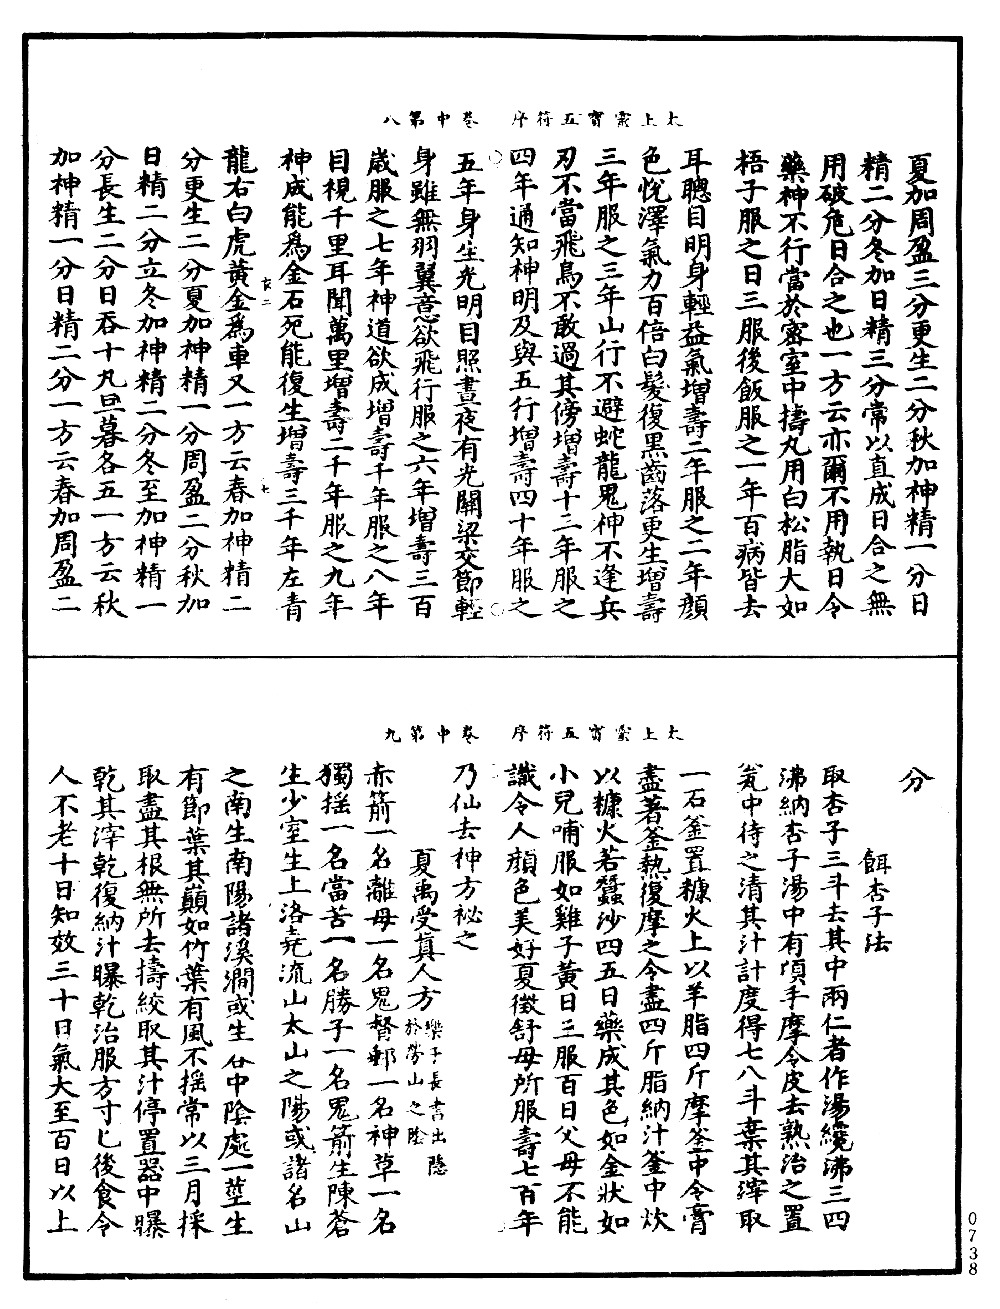 太上靈寳五符序　卷中第八
夏加周盈三分更生二分秋加神精一分日
精二分冬加日精三分常以直成日合之無
用破危日合之也一方云亦爾不用執日令
藥神不行當於密室中擣丸用白松脂大如
梧子服之日三服後飯服之一年百病皆去
耳聰目明身輕益氣增壽二年服之二年顔
色悅澤氣力百倍白髮復黑齒落更生增壽
三年服之三年山行不避蛇龍鬼神不逢兵
刃不當飛鳥不敢過其傍增壽十三年服之
四年通知神明及與五行增壽四十年服之
五年身生光明目照晝夜有光關梁交節輕
身雖無羽翼意欲飛行服之六年增壽三百
歲服之七年神道欲成增壽千年服之八年
目視千里耳聞萬里增壽二千年服之九年
神成能爲金石死能復生增壽三千年左青
龍右白虎黃金爲車又一方云春加神精二
分更生二分夏加神精一分周盈二分秋加
日精二分立冬加神精二分冬至加神精一
分長生二分日吞十丸旦暮各五一方云秋
加神精一分日精二分一方云春加周盈二
太上靈寳五符序　卷中第九
分
餌杏子法
取杏子三斗去其中兩仁者作湯纔沸三四
沸納杏子湯中有頃手摩令皮去熟治之置
瓮中待之清其汁計度得七八斗棄其滓取
一石釜置糠火上以羊脂四斤摩釜中令膏
盡著釜熱復摩之令盡四斤脂納汁釜中炊
以糠火若蠶沙四五日藥成其色如金狀如
小兒哺服如雞子黃日三服百日父母不能
識令人顔色美好夏徵舒母所服壽七百年
乃仙去神方祕之
夏禹受眞人方樂子長書出隱於勞山之陰
赤箭一名離母一名鬼督郵一名神草一名
獨搖一名當苦一名勝子一名鬼箭生陳蒼
生少室生上洛堯流山太山之陽或諸名山
之南生南陽諸溪澗或生谷中陰處一莖生
有節葉其巔如竹葉有風不揺常以三月採
取盡其根無所去擣絞取其汁停置器中曝
乾其滓乾復納汁曝乾治服方寸匕後食令
人不老十日知效三十日氣大至百日以上
0738